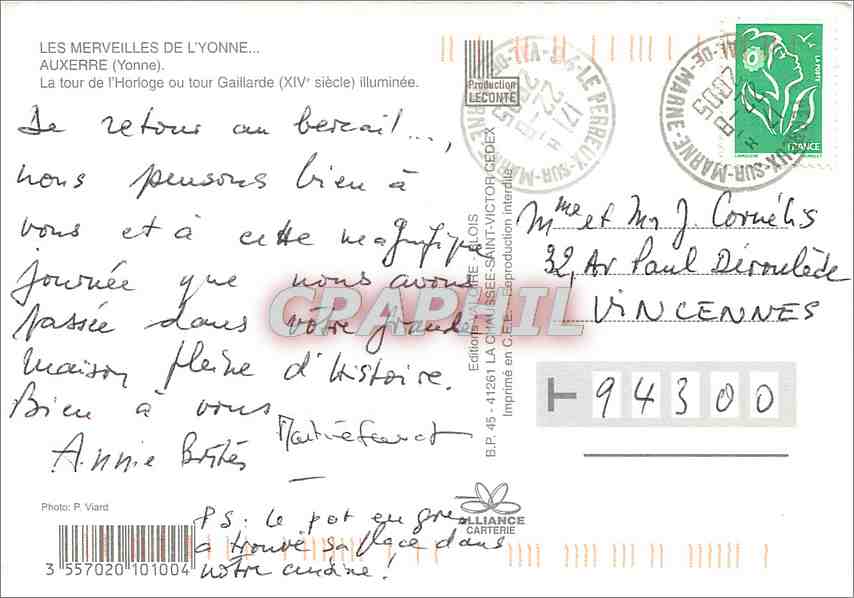 LES MERVEILLES DE L'YONNE...
AUXERRE (Yonne).
La tour de l'Horloge ou tour Gaillarde (XIVe siècle) illuminée.
De retour au bercail...,
nous pensons bien à
vous et à cette magnifique
journée que nous avons
passée dans votre grande
maison pleine d'histoire.
Bien à vous
Annie
PS: Le pot en grès
a trouvé sa place dans
notre cuisine!
Photo: P. Viard
3 557020 101004
Production
LECONTE
Editions VALOIRE - BLOIS
B.P. 45 - 41261 LA CHAUSSEE-SAINT-VICTOR CEDEX
Imprimé en C.E.E. - Reproduction interdite
ALLIANCE
CARTERIE
CPAPHIL
94-LE PERREUX-SUR-MARNE
VAL-DE-MARNE
2005
LA POSTE
FRANCE
Mme et Mr J. Cornélis
32, Av Paul Déroulède
VINCENNES
94300